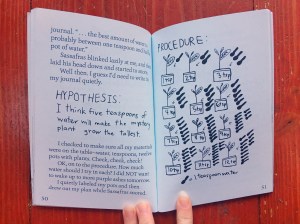 journal. "
". . . the best amount of water is
probably between one teaspoon and
pot of water."
Sassafras blinked lazily at me, and
laid his head down and started to
Well then. I guess I'd need to write in
my journal quietly.
HYPOTHESIS:
I think five teaspoons of
water will make the mystery
plant grow the tallest.
I checked to make sure all my materials
were on the table—water, teaspoons, twelve
pots with plants. Check, check, check!
OK, on to the procedure. How much
water should I try in each? I did NOT want
to wake up to more purple ashes tomorrow
I quietly labeled my pots and then
drew out my plan while Sassafras snored.
50
PROCEDURE:
1 tsp
2 tsp
3 tsp
4 tsp
5 tsp
6 tsp
7 tsp
8 tsp
9 tsp
10 tsp
11 tsp
12 tsp
= 1 teaspoon water
51